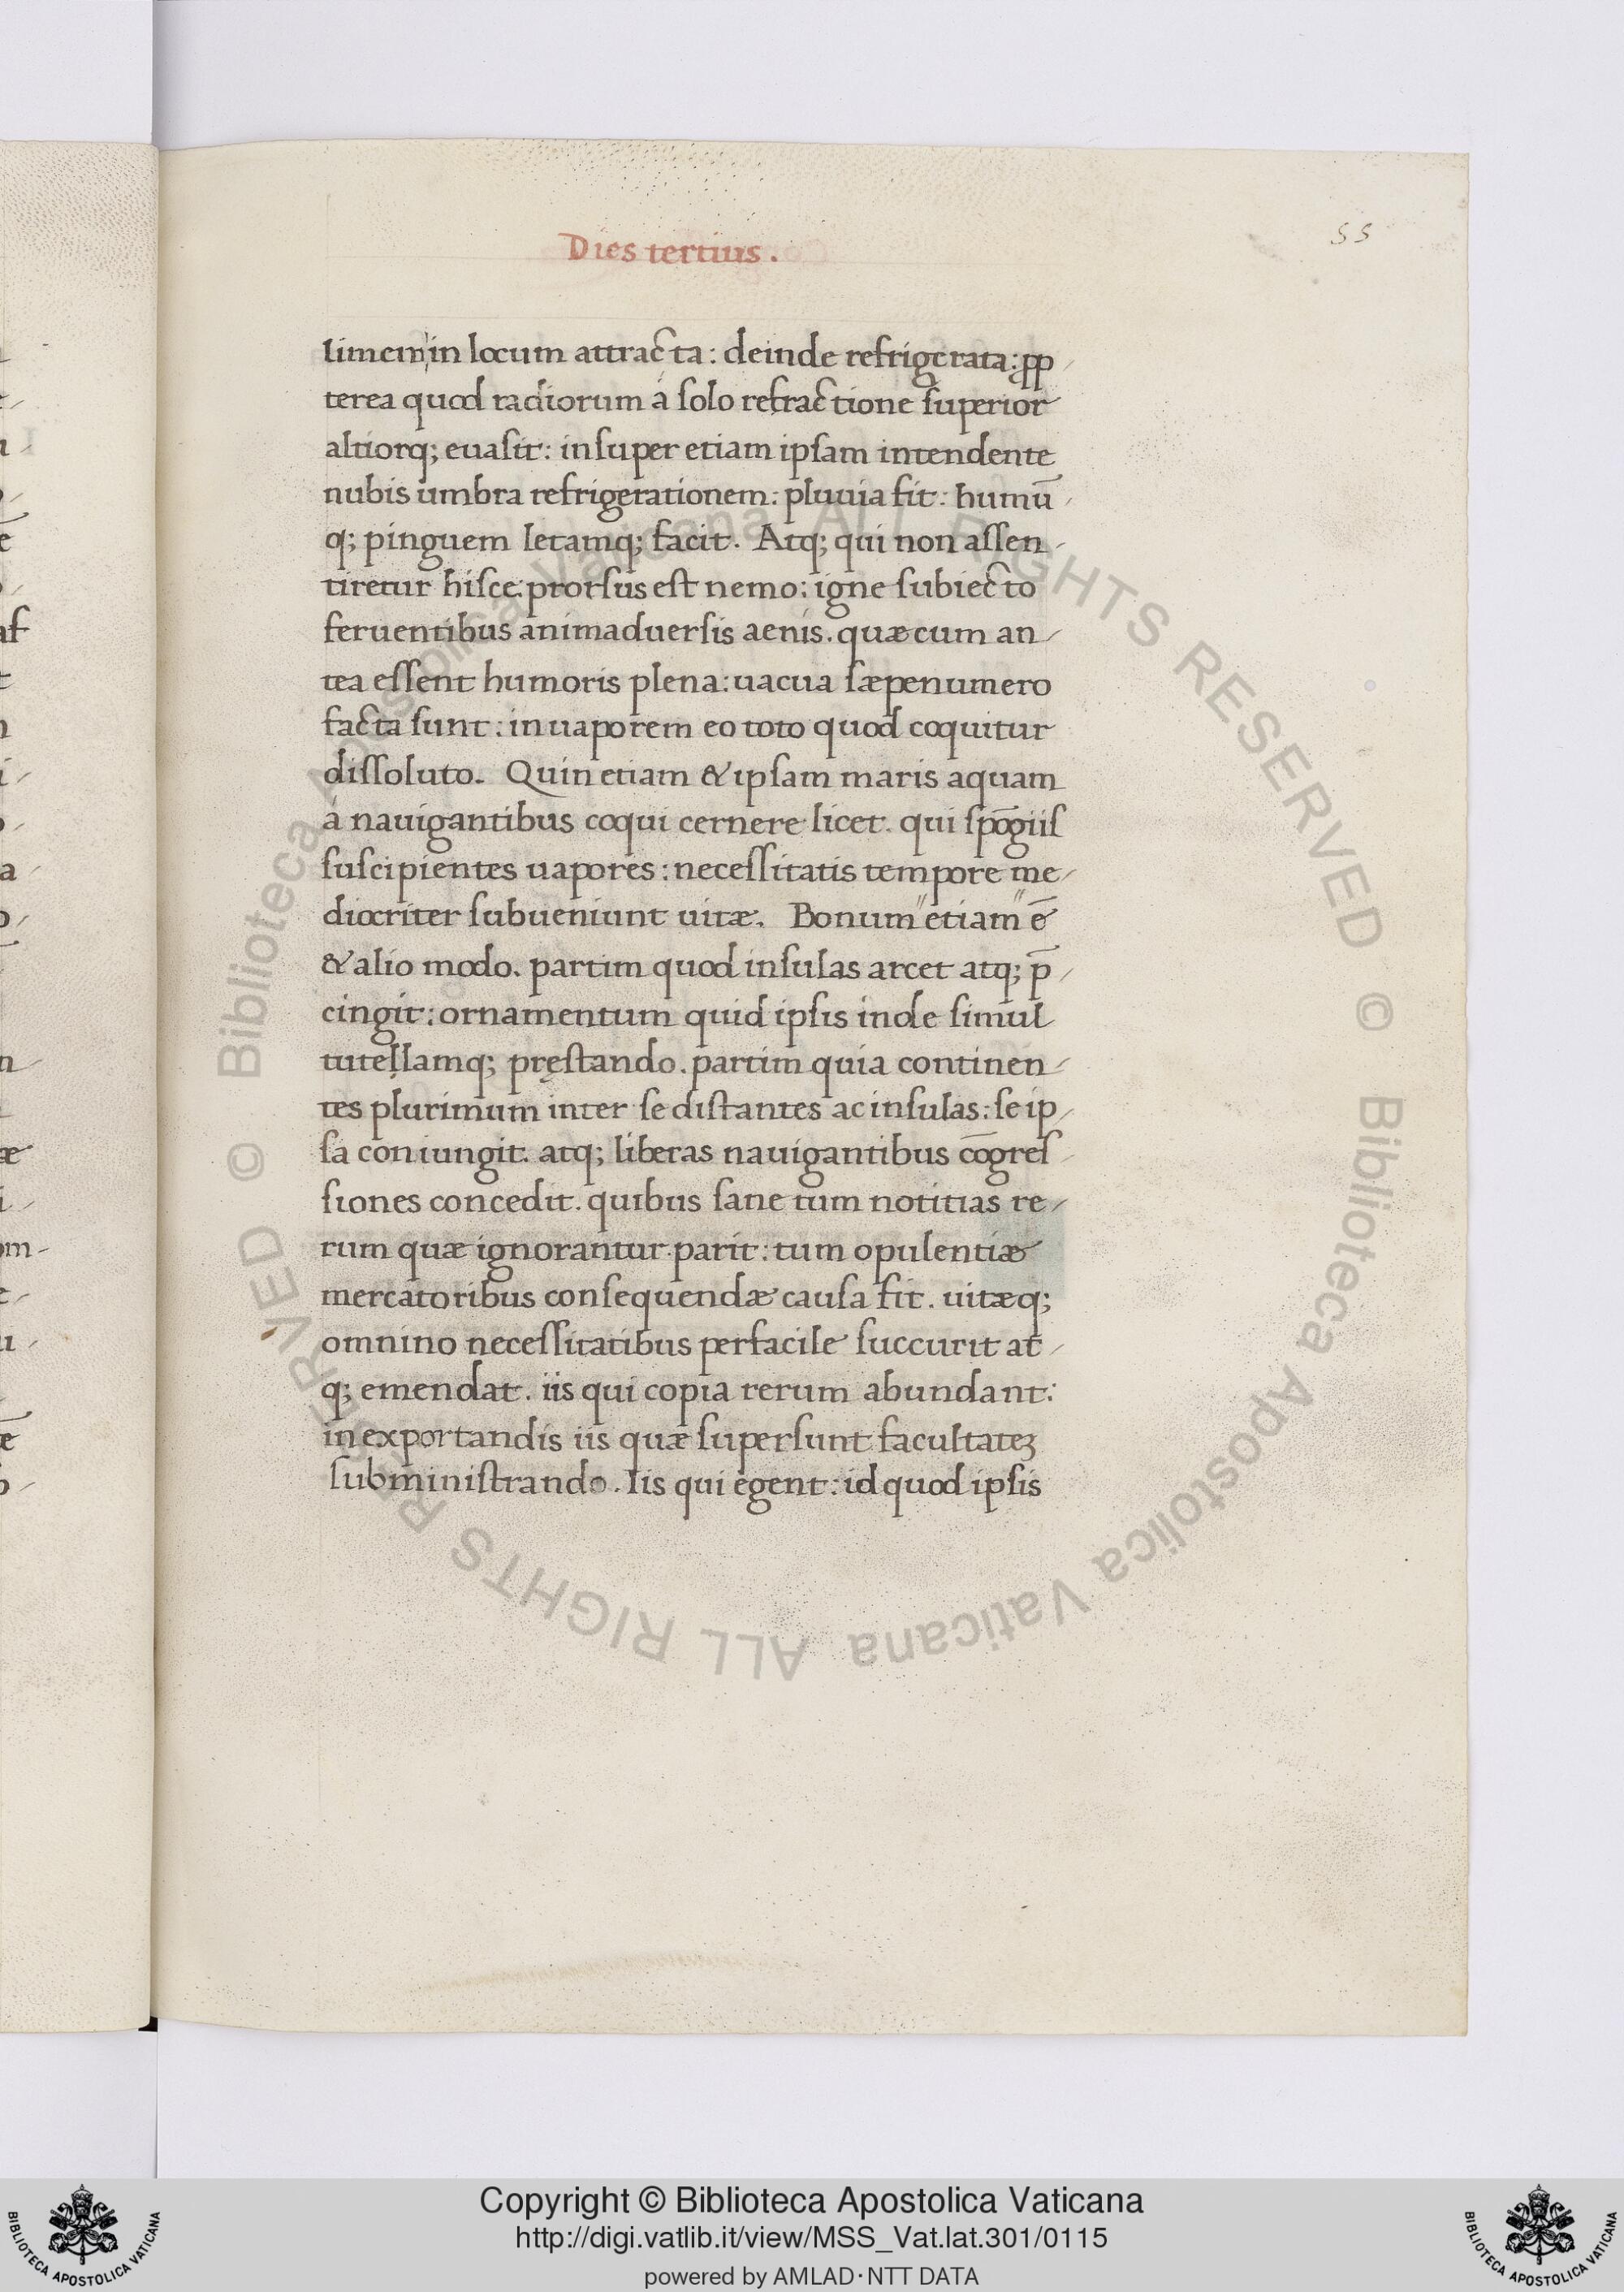 Dies tertius.
55
limem in locum attracta: deinde refrigerata: ꝓp/
terea quod radiorum á ſolo refractione ſuperior
altiorq; euaſit: inſuper etiam ipſam intendente
nubis umbra refrigerationem: pluuia fit: humū/
q; pinguem letamq; facit. Atq; qui non aſſen/
tiretur hiſce: prorſus eſt nemo: igne ſubiecto
feruentibus animaduerſis aenis. quæ cum an/
tea eſſent humoris plena: uacua ſæpenumero
facta ſunt: in uaporem eo toto quod coquitur
diſſoluto. Quin etiam & ipſam maris aquam
á nauigantibus coqui cernere licet. qui ſpōgiiſ
ſuſcipientes uapores: neceſſitatis tempore me/
diocriter ſubueniunt uitæ. Bonum" etiam" ē
& alio modo. partim quod inſulas arcet atq; p̄/
cingit: ornamentum quid ipſis inde ſimul
tutellamq; pręſtando. partim quia continen/
tes plurimum inter ſe diſtantes ac inſulas: ſe ip/
ſa coniungit. atq; liberas nauigantibus cōgreſ/
ſiones concedit. quibus ſane tum notitias re/
rum quæ ignorantur parit: tum opulentiæ
mercatoribus conſequendæ cauſa fit. uitæq;
omnino neceſſitatibus perfacile ſuccurit at/
q; emendat. iis qui copia rerum abundant:
in exportandis iis quæ ſuperſunt facultateʒ
ſubminiſtrando. Iis qui egent: id quod ipſis
© Biblioteca Apostolica Vaticana ALL RIGHTS RESERVED
© Biblioteca Apostolica Vaticana ALL RIGHTS RESERVED
BIBLIOTECA APOSTOLICA VATICANA
Copyright © Biblioteca Apostolica Vaticana
http://digi.vatlib.it/view/MSS_Vat.lat.301/0115
powered by AMLAD·NTT DATA
BIBLIOTECA APOSTOLICA VATICANA